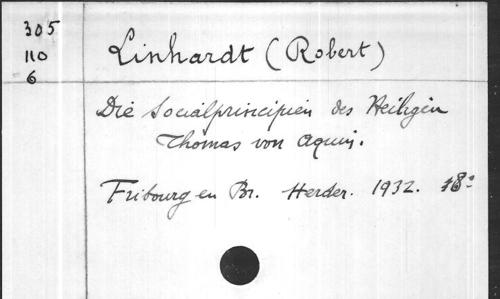 305
110
6
Linhardt (Robert)
Die Socialprincipien des Heiligen
Thomas von Aquin.
Fribourg en Br. Herder. 1932. 18°